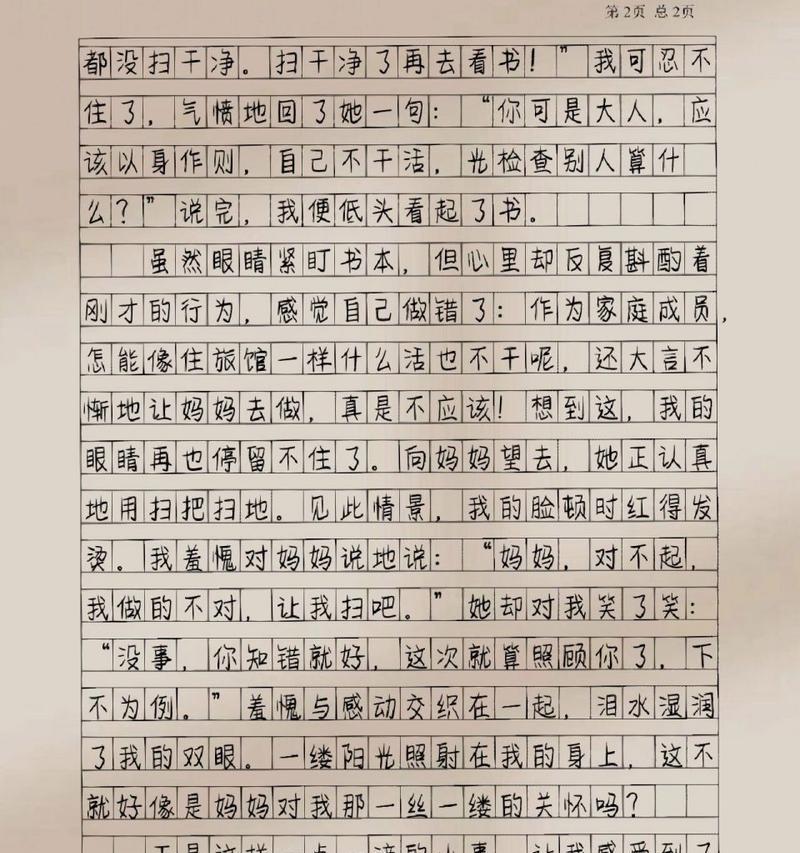 第2页 总2页
都没扫干净。扫干净了再去看书！”我可忍不
住了，气愤地回了她一句：“你可是大人，应
该以身作则，自己不干活，光检查别人算什
么？”说完，我便低头看起了书。
虽然眼睛紧盯书本，但心里却反复斟酌着
刚才的行为，感觉自己做错了：作为家庭成员，
怎能像住旅馆一样什么活也不干呢，还大言不
惭地让妈妈去做，真是不应该！想到这，我的
眼睛再也停留不住了。向妈妈望去，她正认真
地用扫把扫地。见此情景，我的脸顿时红得发
烫。我羞愧对妈妈说地说：“妈妈，对不起，
我做的不对，让我扫吧。”她却对我笑了笑：
“没事，你知错就好，这次就算照顾你了，下
不为例。”羞愧与感动交织在一起，泪水湿润
了我的双眼。一缕阳光照射在我的身上，这不
就好像是妈妈对我那一丝一缕的关怀吗？
正是这样一点一滴的小事，让我感受到了